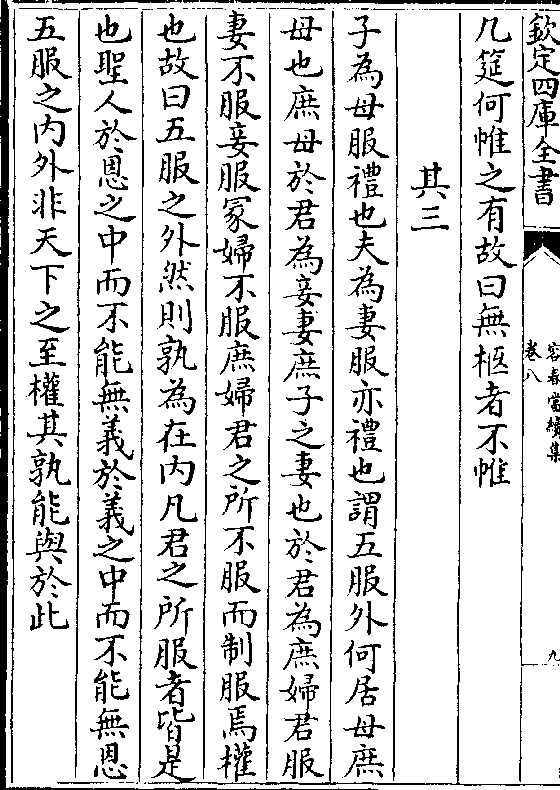 欽定四庫全書
容春堂續集
卷八
九
几筵何帷之有故曰無柩者不帷
其三
子為母服禮也夫為妻服亦禮也謂五服外何居母庶
母也庶母於君為妾妻庶子之妻也於君為庶婦君服
妻不服妾服冡婦不服庶婦君之所不服而制服焉權
也故曰五服之外然則孰為在内凡君之所服者皆是
也聖人於恩之中而不能無義於義之中而不能無恩
五服之内外非天下之至權其孰能與於此